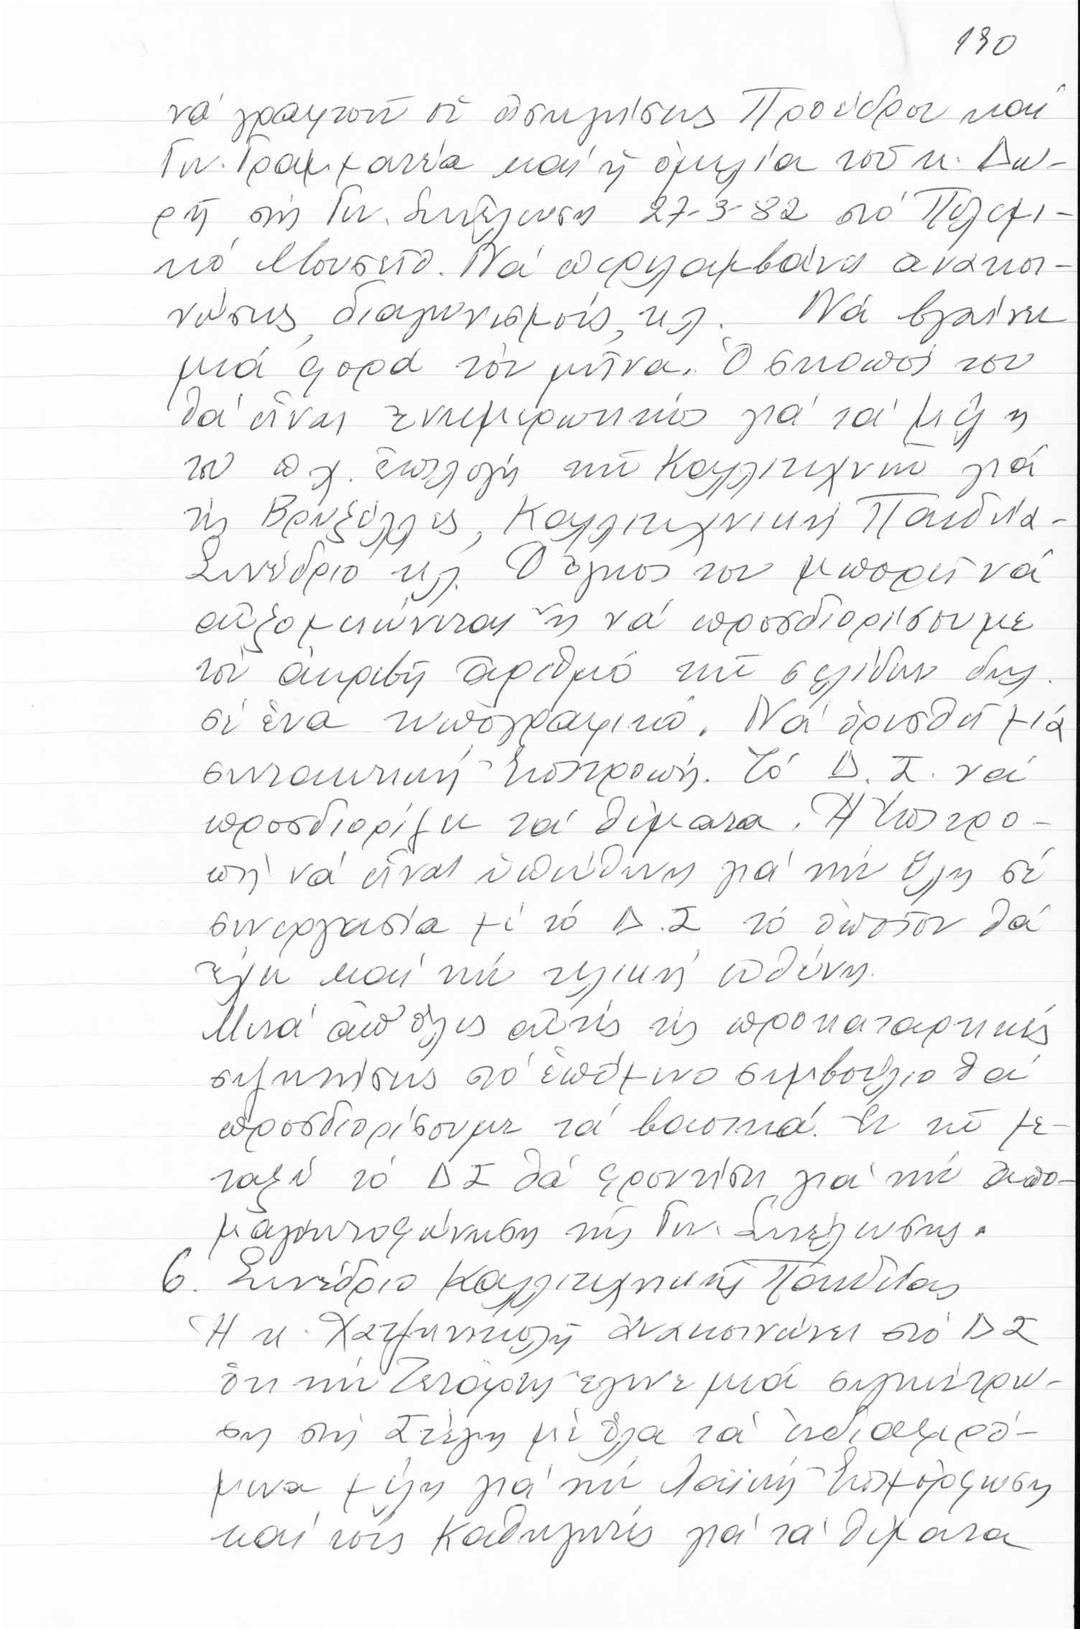 190
νά γραφτοῦν οἱ εἰσηγήσεις Προέδρου καί
Γεν. Γραμματέα καί ἡ ὁμιλία τοῦ κ. Δω-
ρῆ στή Γεν. Συνέλευση 27-3-82 στό Πολεμι-
κό Μουσεῖο. Νά περιλαμβάνει ἀνακοι-
νώσεις, διαγωνισμούς, κλ. Νά βγαίνει
μιά φορά τόν μῆνα. Ὁ σκοπός του
θά εἶναι ἐνημερωτικός γιά τά μέλη
του π.χ. ἐπιλογή τῶν Καλλιτεχνῶν γιά
τίς Βρυξέλλες, Καλλιτεχνική Παιδεία-
Συνέδριο κλ. Ὁ ὄγκος του μπορεῖ νά
αὐξομειώνεται ἤ νά προσδιορίσουμε
τόν ἀκριβῆ ἀριθμό τῶν σελίδων δηλ.
σέ ἕνα τυπογραφικό. Νά ὁρισθεῖ μιά
συντακτική Ἐπιτροπή. Τό Δ.Σ. νά
προσδιορίζει τά θέματα. Ἡ Ἐπιτρο-
πή νά εἶναι ὑπεύθυνη γιά τήν ὕλη σέ
συνεργασία μέ τό Δ.Σ τό ὁποῖον θά
ἔχει καί τήν τελική εὐθύνη.
Μετά ἀπ' ὅλες αὐτές τίς προκαταρκτικές
συζητήσεις στό ἑπόμενο συμβούλιο θά
προσδιορίσουμε τά βασικά. Ἐν τῷ με-
ταξύ τό ΔΣ θά φροντίσει γιά τήν ἀπο-
μαγνητοφώνηση τῆς Γεν. Συνέλευσης.
6. Συνέδριο Καλλιτεχνικῆς Παιδείας
Ἡ κ. Χατζηνικολῆ ἀνακοινώνει στό ΔΣ
ὅτι τήν Τετάρτη ἔγινε μιά συγκέντρω-
ση στή Στέγη μέ ὅλα τά ἐνδιαφερό-
μενα μέλη γιά τήν Λαϊκή Ἐπιμόρφωση
καί τούς Καθηγητές γιά τά θέματα